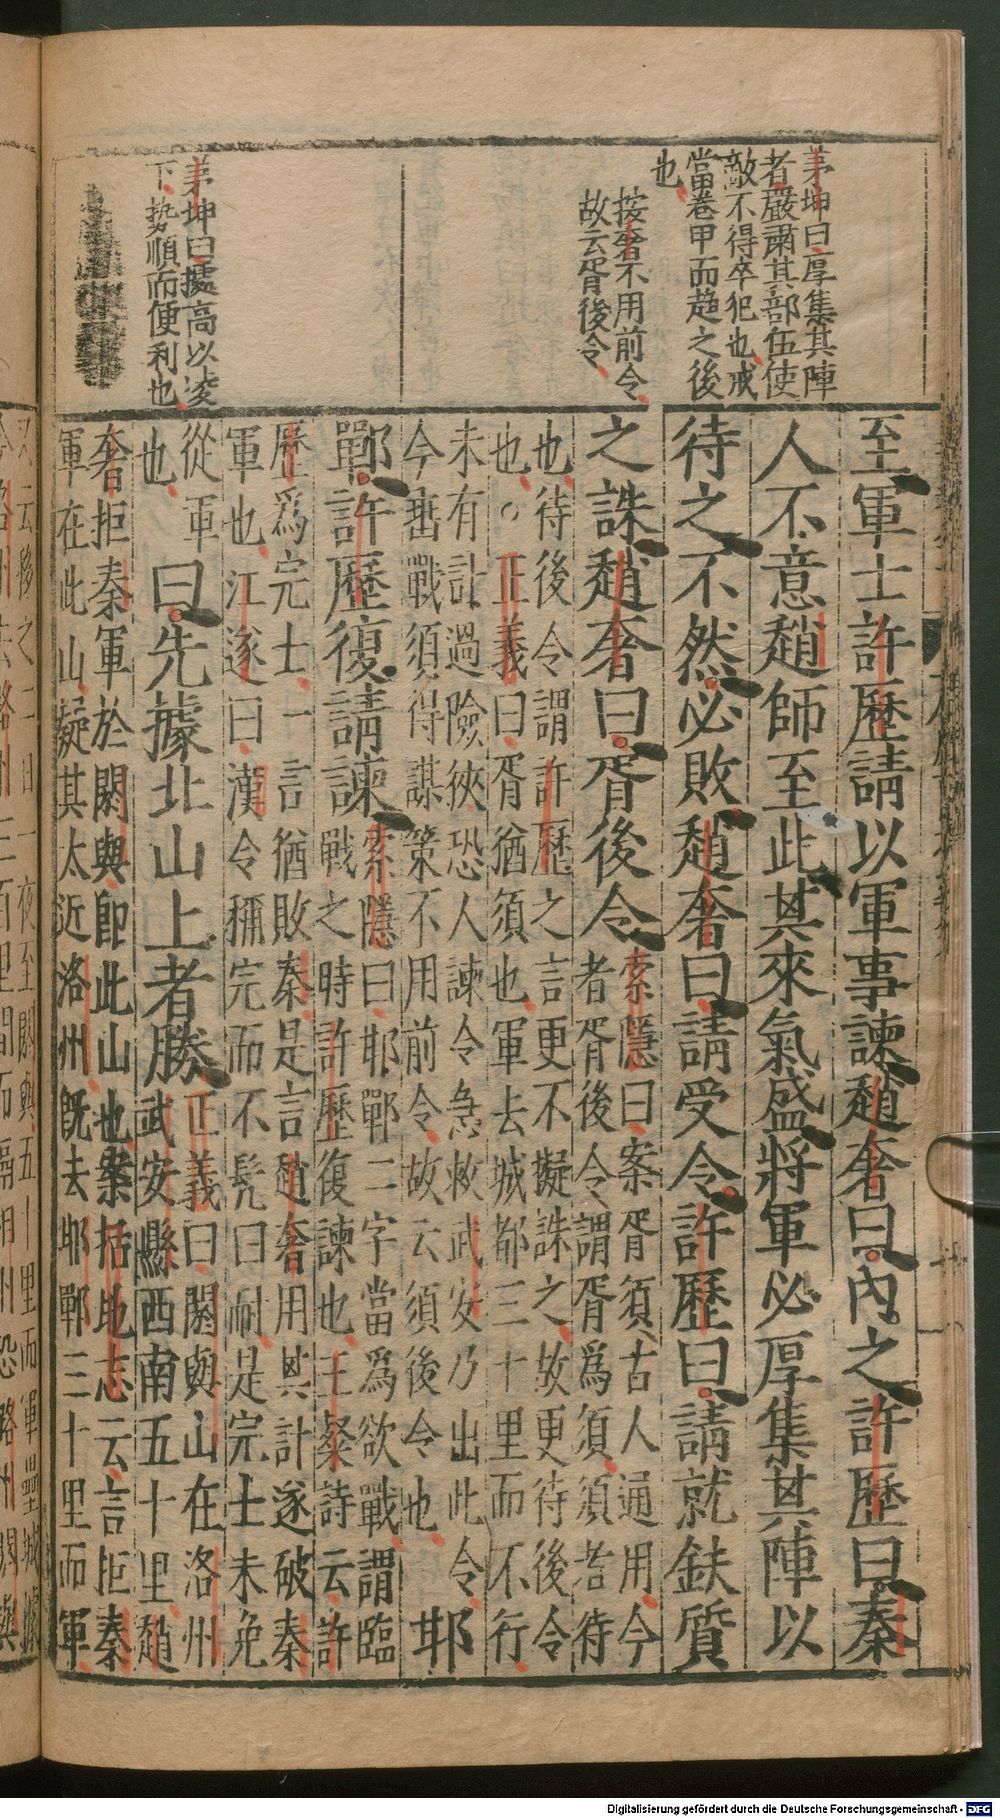 茅坤曰厚集其陣
者嚴肅其部伍使
敵不得卒犯也戒
當卷甲而趨之後
也
按奢不用前令
故云胥後令
茅坤曰據高以凌
下勢順而便利也
至軍士許歷請以軍事諫趙奢曰內之許歷曰秦
人不意趙師至此其來氣盛將軍必厚集其陣以
待之不然必敗趙奢曰請受令許歷曰請就鈇質
之誅趙奢曰胥後令
索隱曰案胥須古人通用今
者胥後令謂胥爲須須者待
也待後令謂許歷之言更不擬誅之故更待後令
也。正義曰胥猶須也軍去城都三十里而不行
未有計過險狹恐人諫令急救武安乃出此令
今垂戰須得謀策不用前令故云須後令也
邯
鄲許歷復請諫
索隱曰邯鄲二字當爲欲戰謂臨
戰之時許歷復諫也王粲詩云許
歷爲完士一言猶敗秦是言趙奢用其計遂破秦
軍也江遂曰漢令稱完而不髡曰耐是完士未免
從軍
也
曰先據北山上者勝
正義曰閼與山在洛州
武安縣西南五十里趙
奢拒秦軍於閼與卽此山也案括地志云言拒秦
軍在此山疑其太近洛州旣去邯鄲三十里而軍
Digitalisierung gefördert durch die Deutsche Forschungsgemeinschaft - DFG